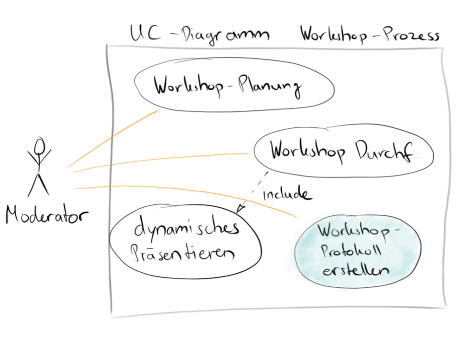 UC-Diagramm Workshop-Prozess
Workshop-Planung
Workshop Durchf.
include
Moderator
dynamisches
Präsentieren
Workshop-
Protokoll
erstellen